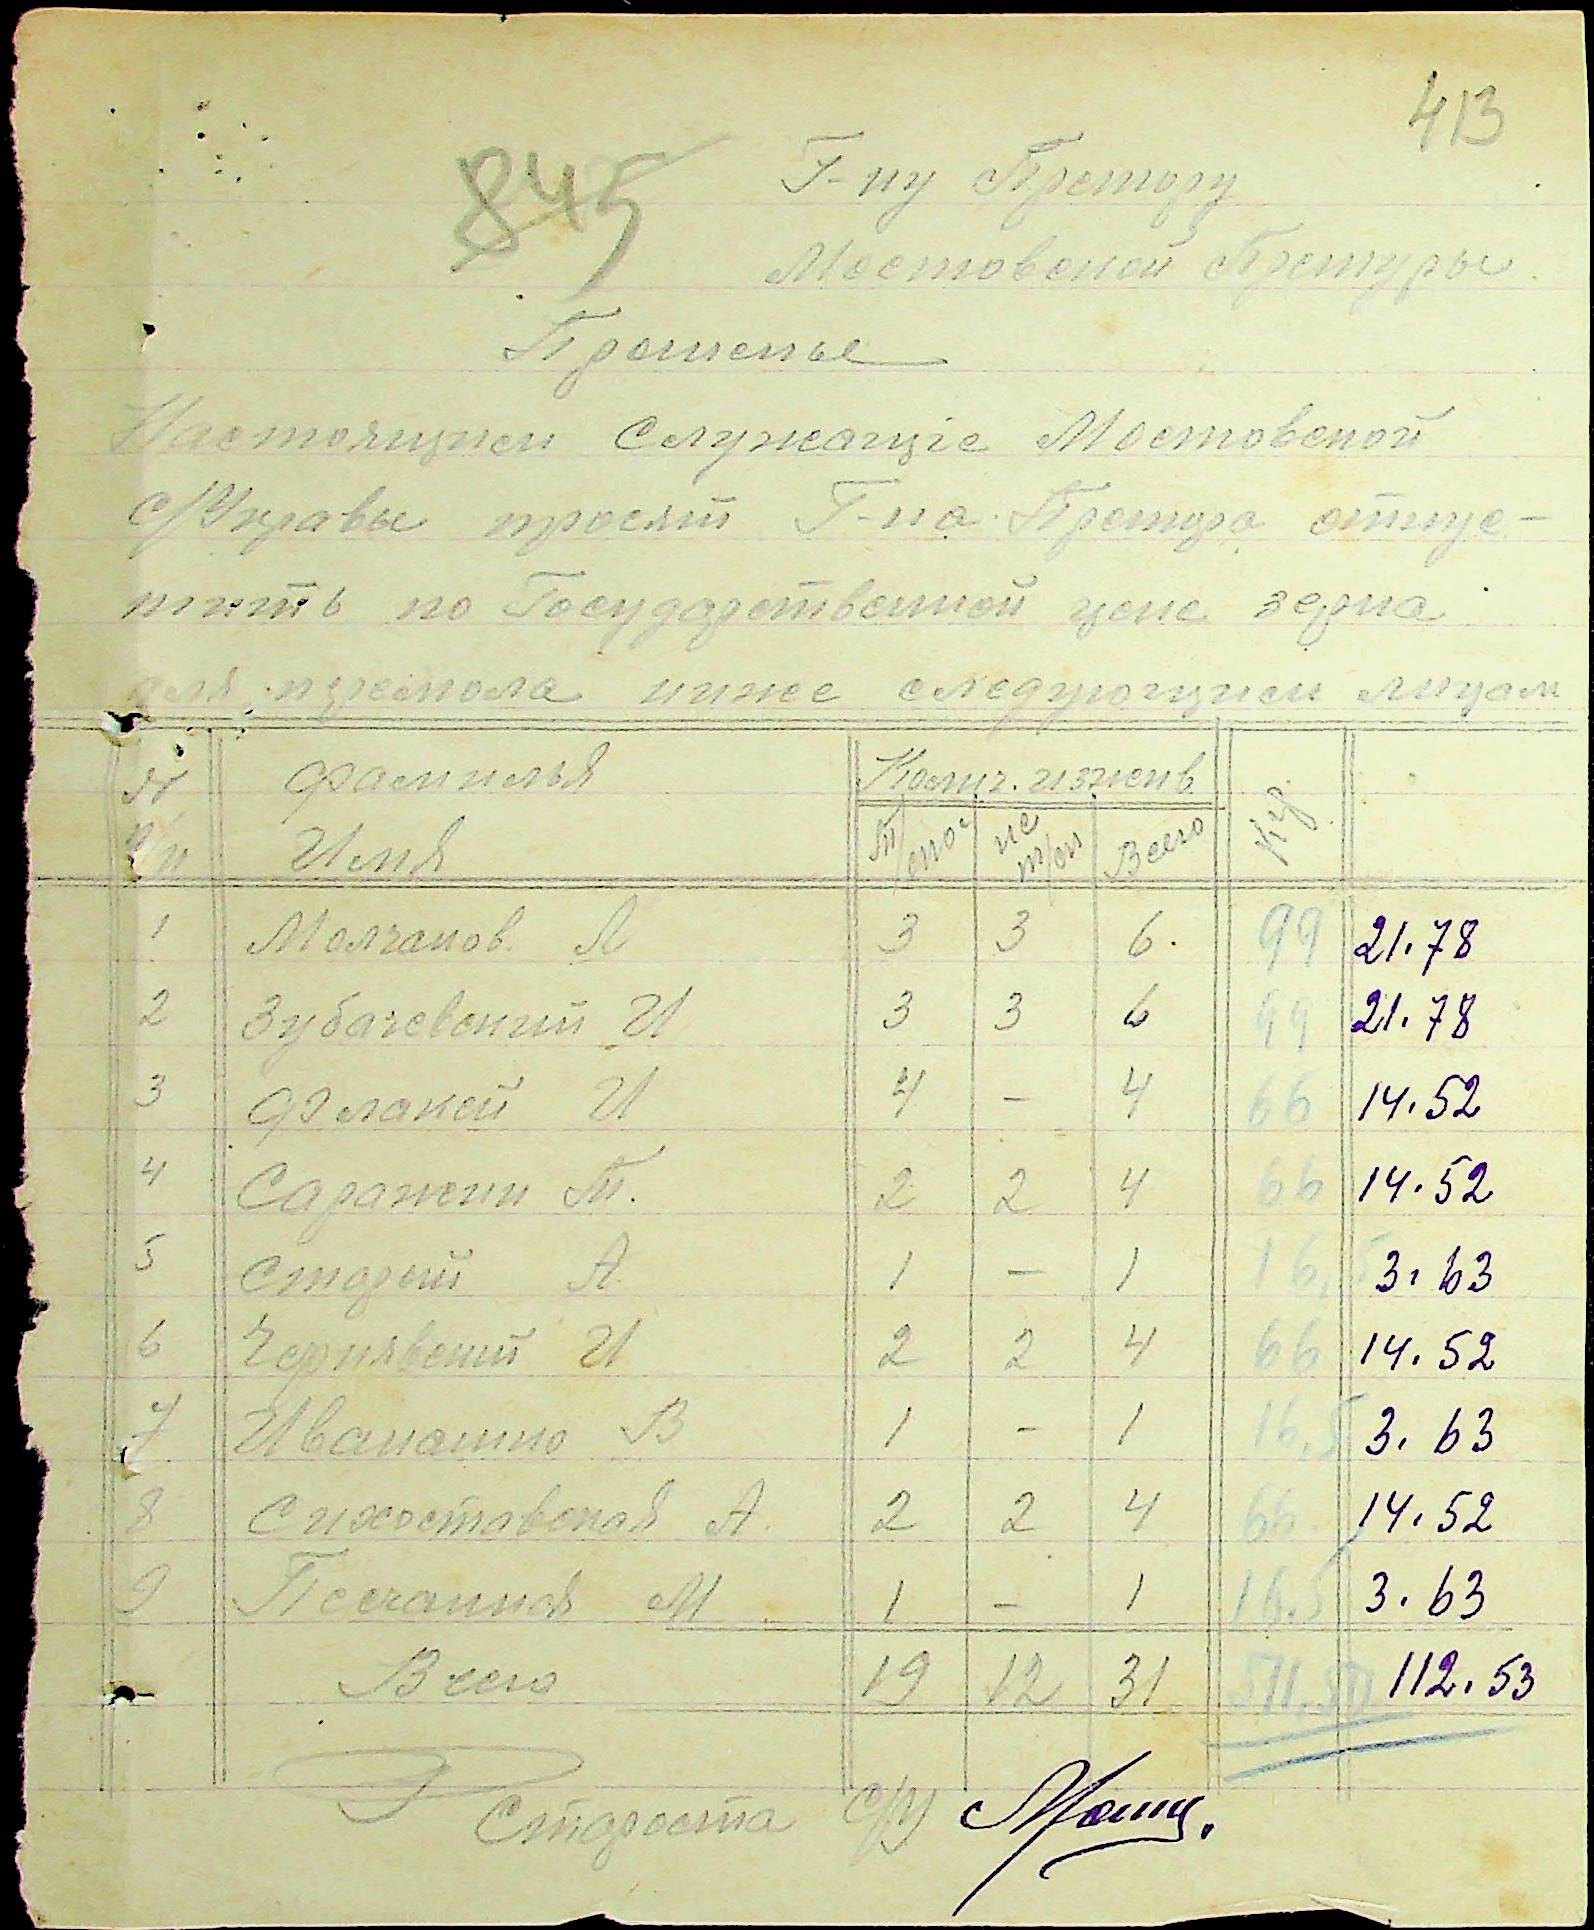 413
845
Г-ну Претору
Мостовской Претуры.
Прошенье
Настоящим Служащіе Мостовской
С/Управы просят Г-на Претора отпус-
тить по Государственной цене зерна
для перемола ниже следующим лицам
№ п/п Фамилья Имя Колич. иждив. т/спос не т/сп Всего Кгр
1 Молчанов. А 3 3 6. 99 21.78
2 Зубачевский И 3 3 6 99 21.78
3 Флакей И 4 – 4 66 14.52
4 Саражин Т. 2 2 4 66 14.52
5 Старый А. 1 – 1 16,5 3.63
6 Чернявский И 2 2 4 66 14.52
7 Иванашко В 1 – 1 16,5 3.63
8 Сихоставская А. 2 2 4 66 14.52
9 Песчанная М. 1 – 1 16.5 3.63
Всего 19 12 31 511.50 112.53
Староста С/У